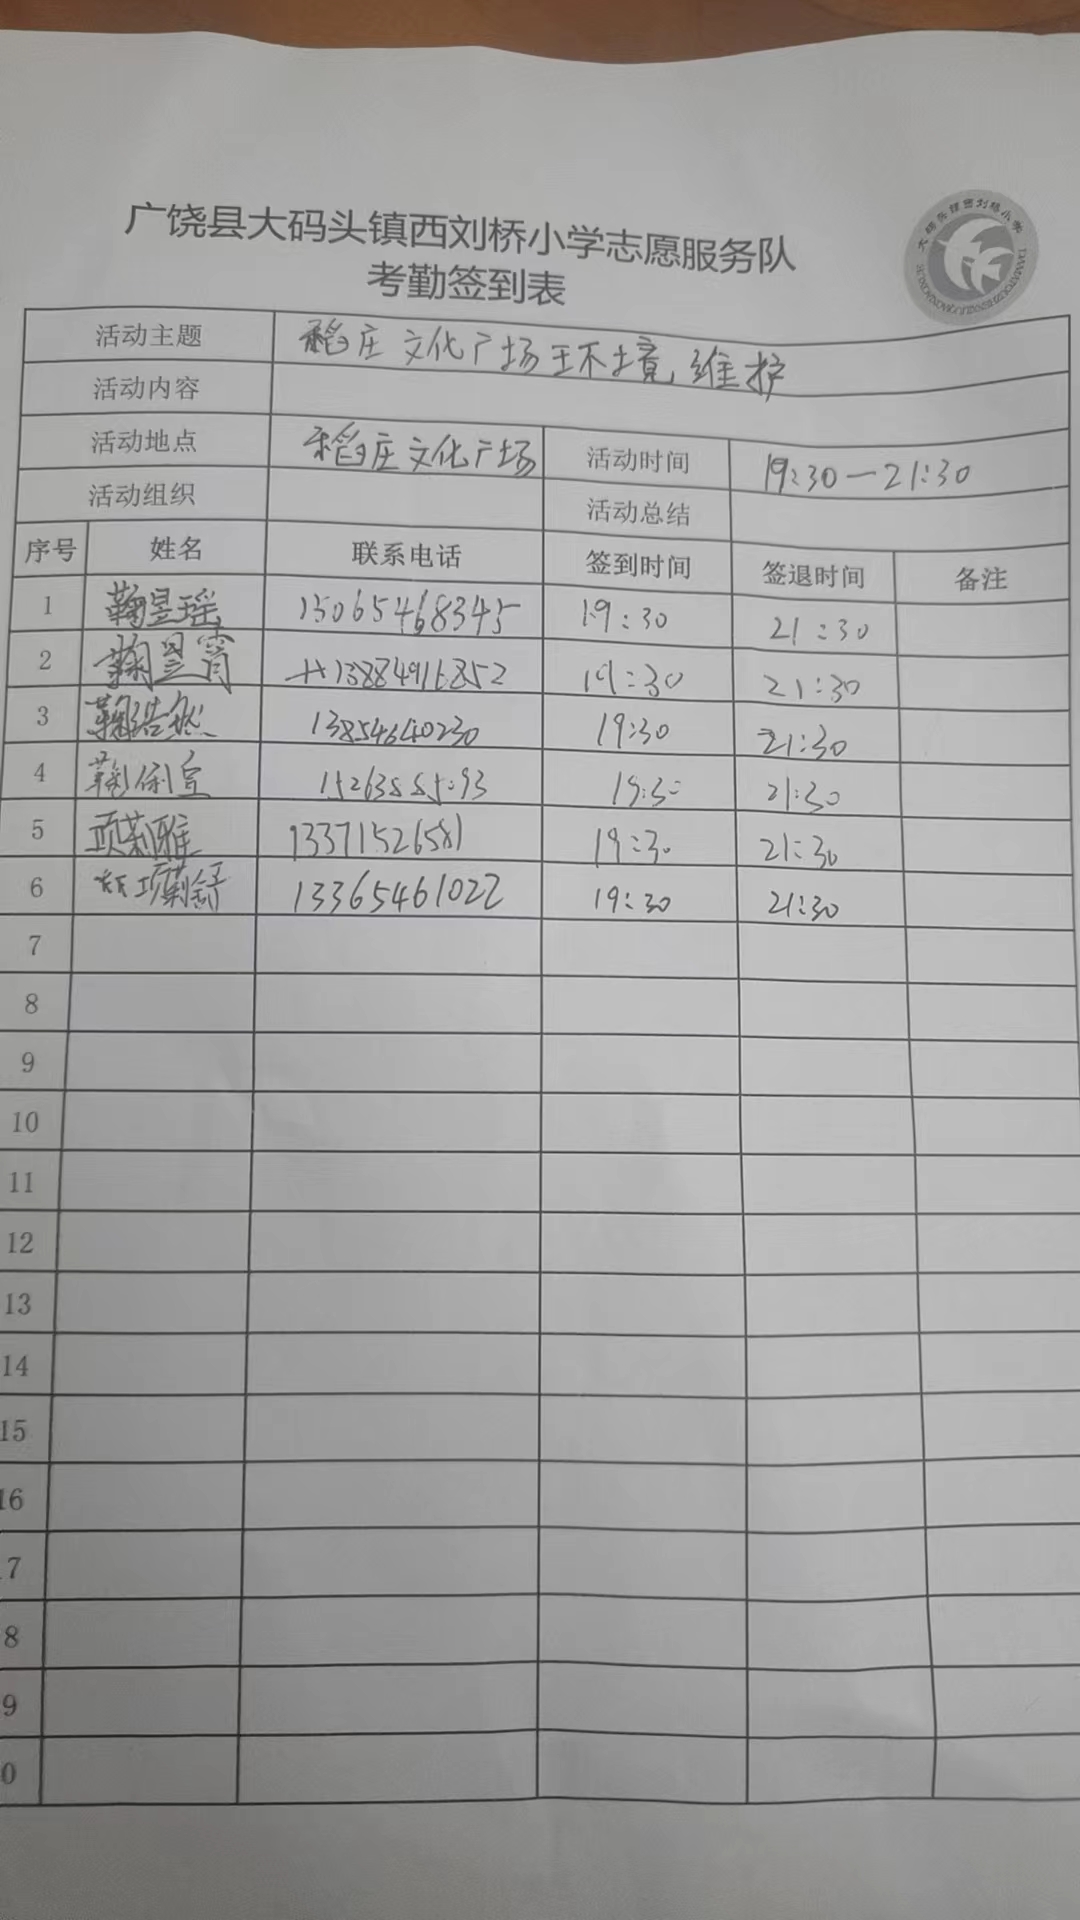 广饶县大码头镇西刘桥小学志愿服务队
考勤签到表
大码头镇西刘桥小学
活动主题 稻庄文化广场环境维护
活动内容
活动地点 稻庄文化广场 活动时间 19:30—21:30
活动组织 活动总结
序号 姓名 联系电话 签到时间 签退时间 备注
1 鞠昱瑶 15065468345 19:30 21:30
2 鞠昱霄 13884916852 19:30 21:30
3 鞠浩然 13854640230 19:30 21:30
4 鞠俐宣 19:30 21:30
5 项莉雅 13371526581 19:30 21:30
6 项莉舒 13365461022 19:30 21:30
7
8
9
10
11
12
13
14
15
16
7
8
9
0